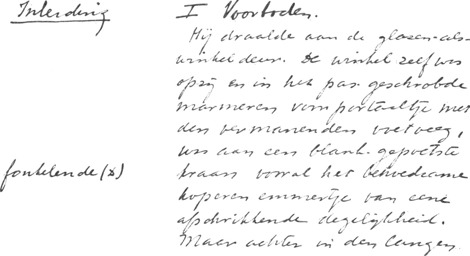 Inleiding
I Voorboden.
Hij draalde aan de glazen-als-
winkeldeur. De winkel zelf was
opzij en in het pas geschrobde
marmeren voorportaaltje met
den vermanenden voetveeg,
was aan een blank gepoetste
fonkelende (x)
kraan vooral het behoedzame
koperen emmertje van eene
afschrikkende degelijkheid.
Maar achter in den langen